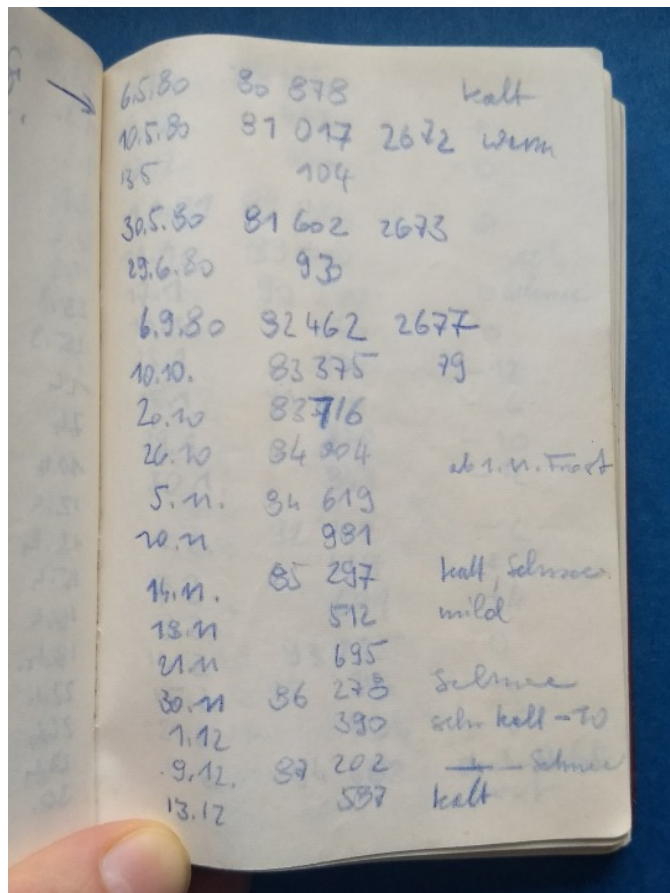 6.5.80 80 878 kalt
10.5.80 81 017 2672 warm
13.5 104
30.5.80 81 602 2673
29.6.80 930
6.9.80 82 462 2677
10.10. 83 375 79
20.10 83 716
26.10 84 204 ab 1.11. Frost
5.11. 84 619
10.11 981
14.11. 85 297 kalt, Schnee
18.11 512 mild
21.11 695
30.11 86 278 Schnee
1.12 390 sehr kalt -10
9.12. 87 202 Schnee
13.12 587 kalt